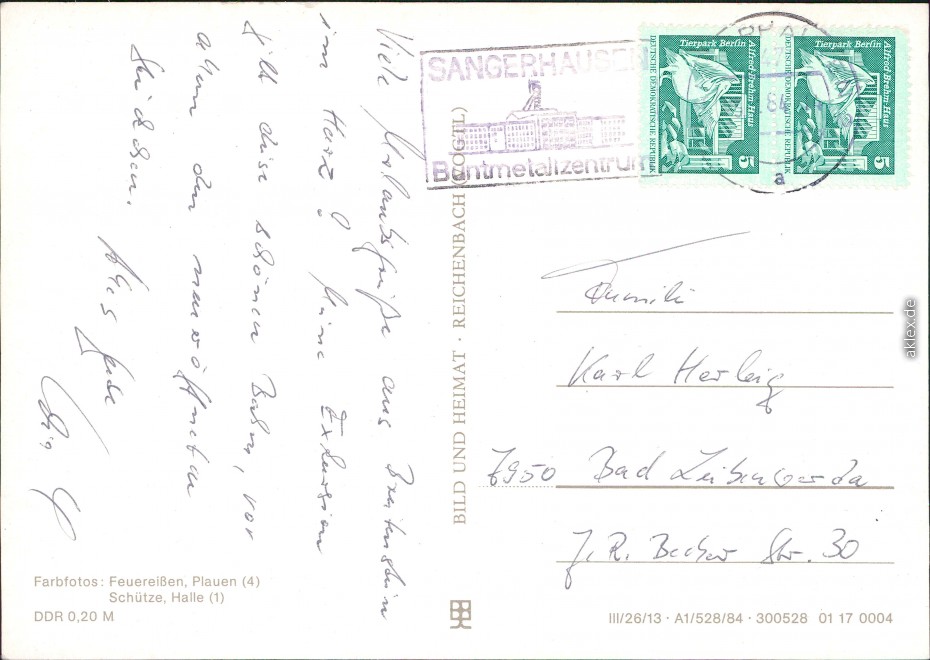 Viele Urlaubsgrüße aus Breitenstein
im Harz! Meine Exkursion
gilt diese schönen Bahn, vor
allem den neueröffneten
Stückchen.
Alles Gute
SANGERHAUSEN
Buntmetallzentrum
84
a
Tierpark Berlin
Alfred-Brehm-Haus
DEUTSCHE DEMOKRATISCHE REPUBLIK
5
Tierpark Berlin
Alfred-Brehm-Haus
DEUTSCHE DEMOKRATISCHE REPUBLIK
5
BILD UND HEIMAT · REICHENBACH (VOGTL)
Familie
Karl Herbig
7950 Bad Liebenwerda
J. R. Becher Str. 30
Farbfotos: Feuereißen, Plauen (4)
Schütze, Halle (1)
DDR 0,20 M
III/26/13 · A1/528/84 · 300528 01 17 0004
aklex.de